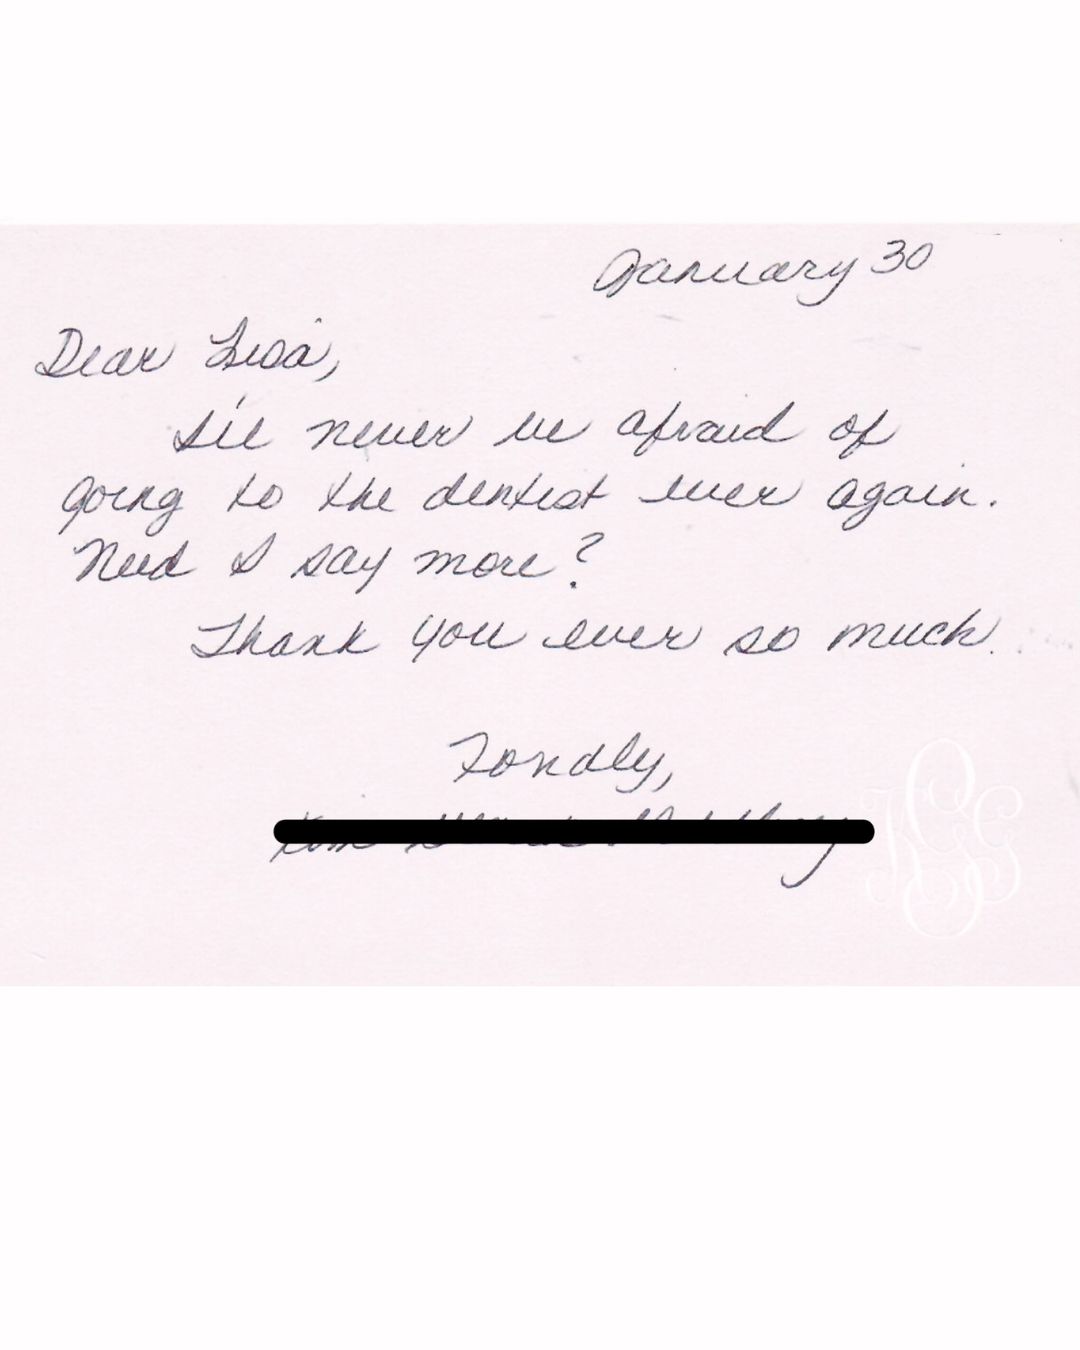 January 30
Dear Lisa,
I'll never be afraid of
going to the dentist ever again.
Need I say more?
Thank you ever so much.
Fondly,